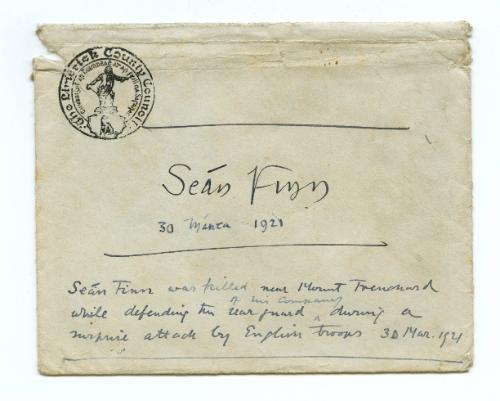 The Limerick County Council
Seán Finn
30 Márta 1921
Seán Finn was killed near Mount Trenchard
of his company
while defending the rear guard ‸ during a
surprise attack by English troops 30 Mar. 1921